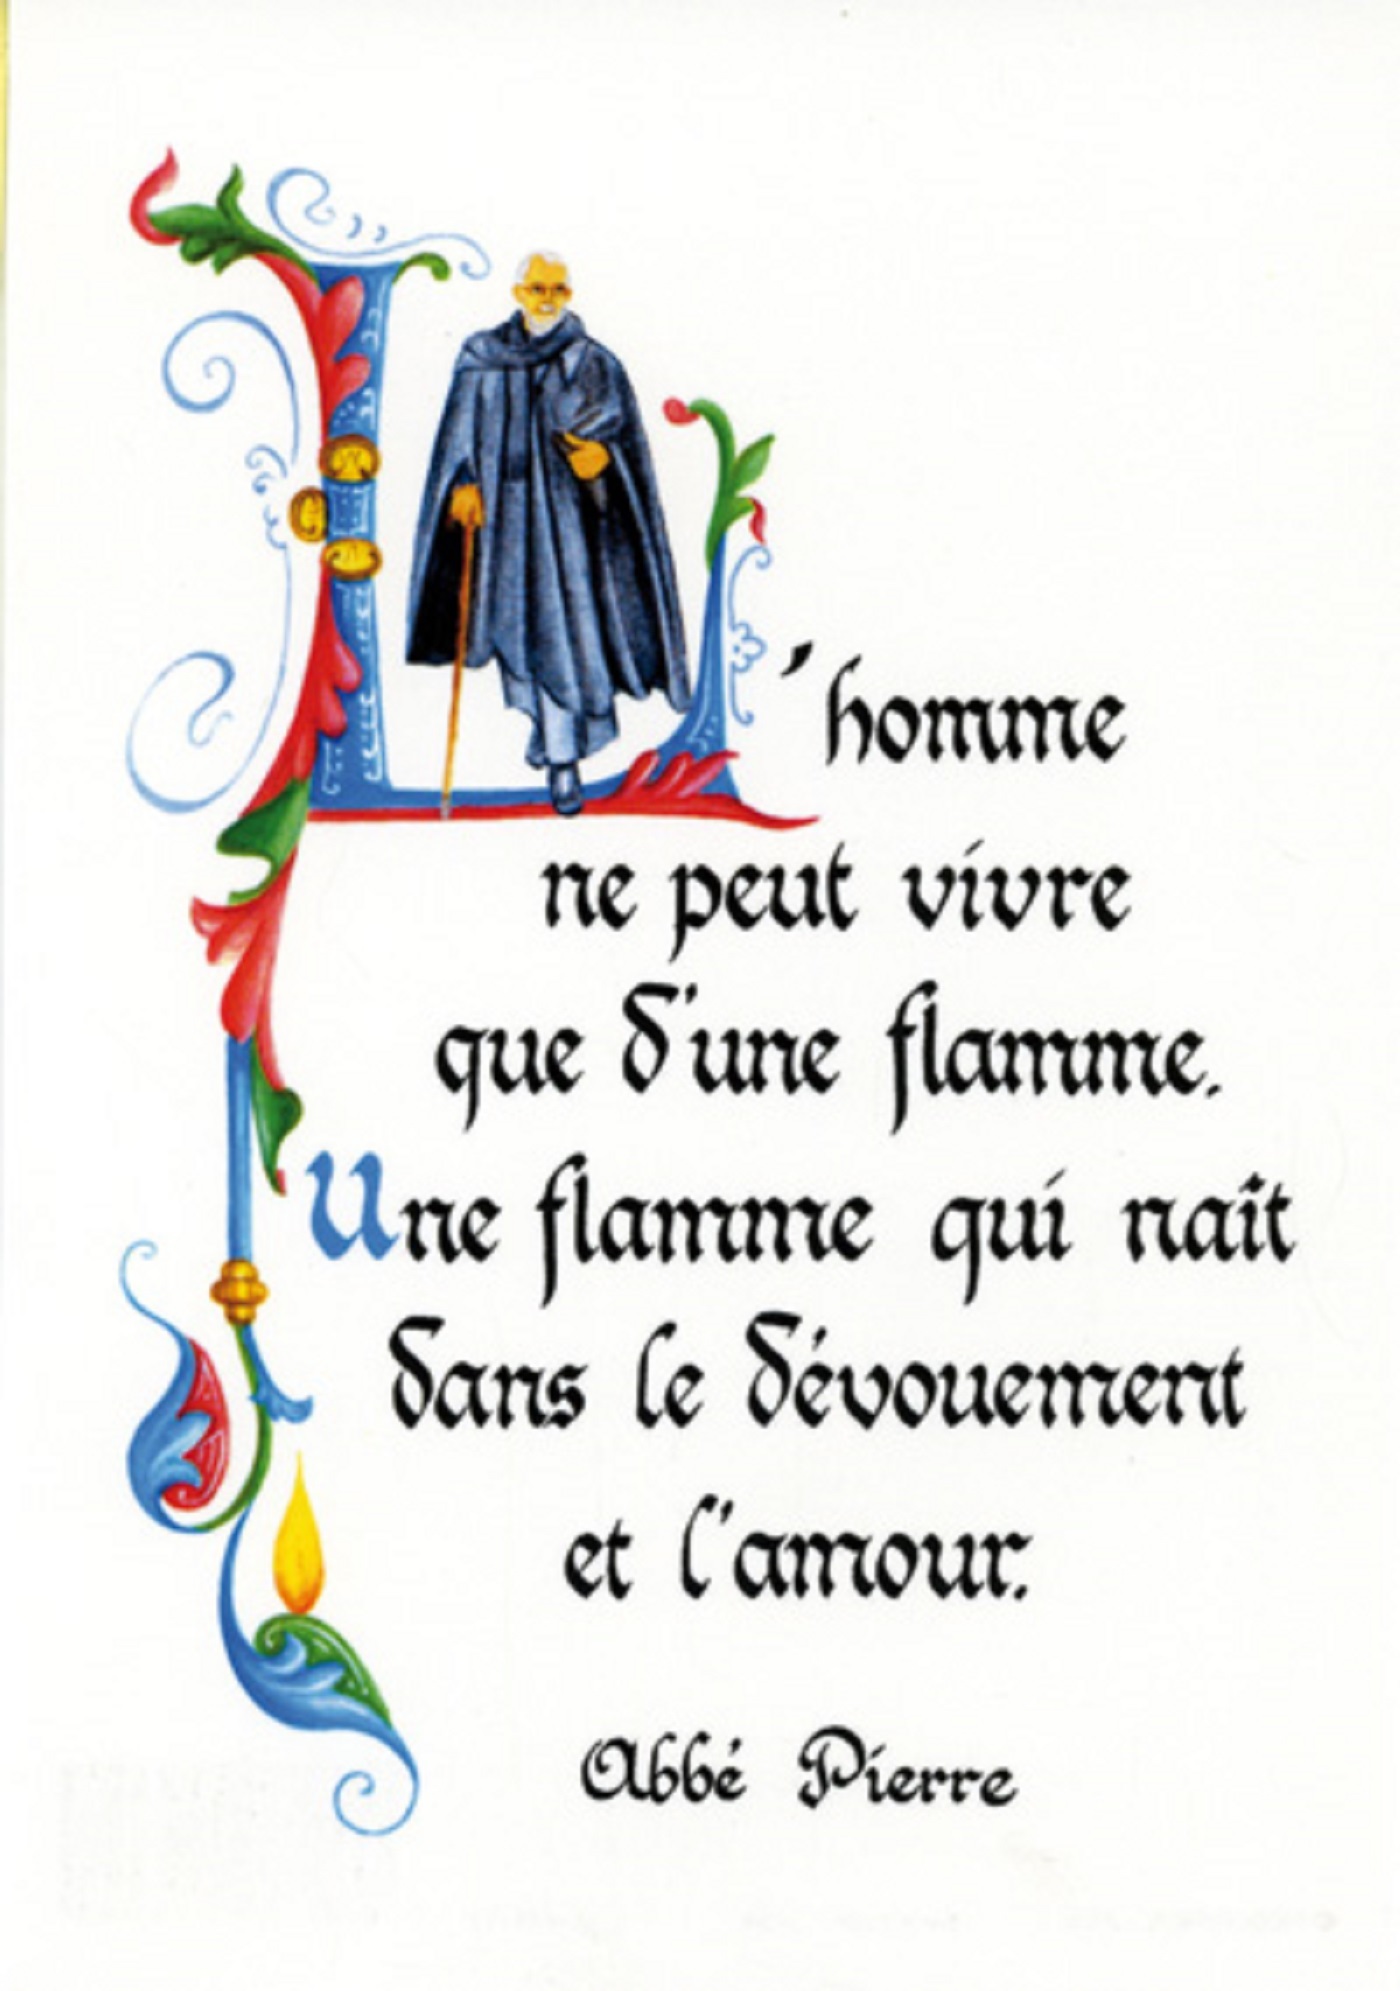 L'homme
ne peut vivre
que d'une flamme.
Une flamme qui naît
dans le dévouement
et l'amour.
Abbé Pierre